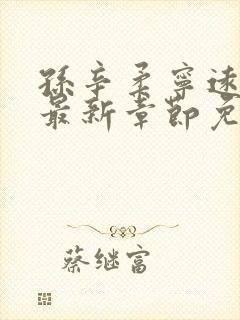 孫辛柔寧遠
最新章節免
蔡继富